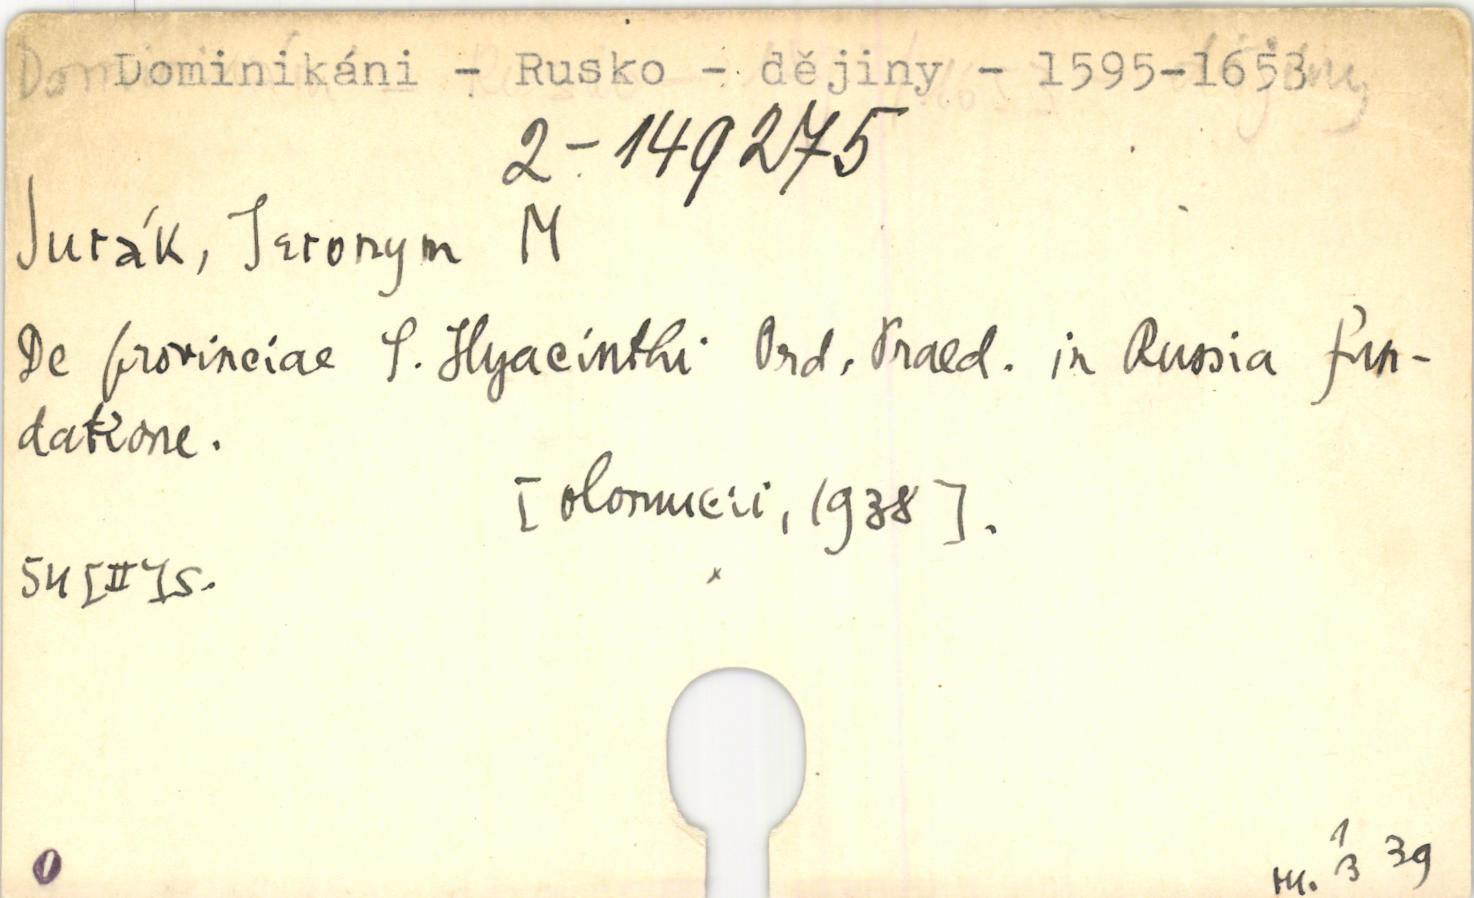 Dominikáni - Rusko - dějiny - 1595-1653
2-149275
Jurák, Jeronym M
De provinciae S. Hyacinthi Ord. Praed. in Russia fun-
datione.
[Olomucii, 1938].
54 [II] s.
1
3 39